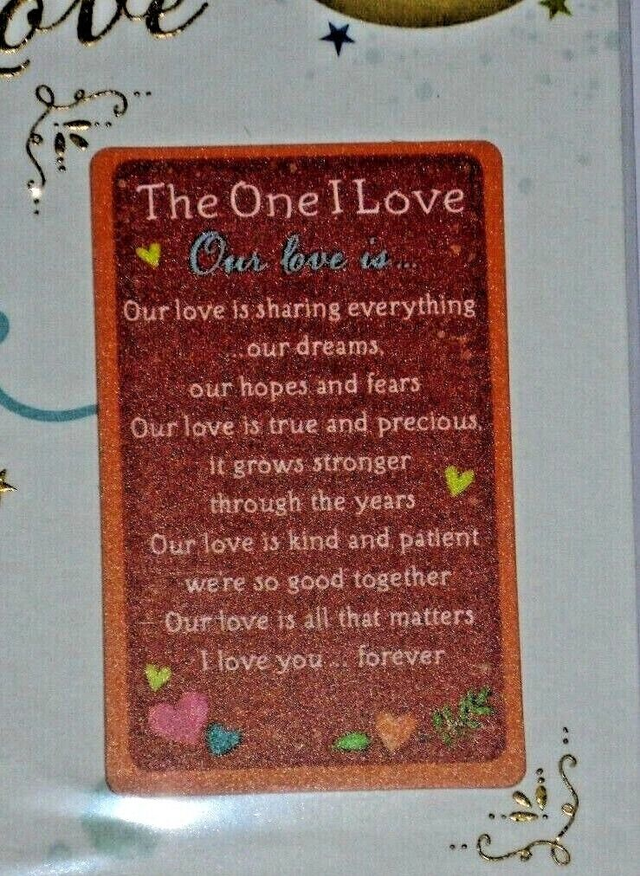 Love
The One I Love
Our love is...
Our love is sharing everything
...our dreams,
our hopes and fears
Our love is true and precious,
it grows stronger
through the years
Our love is kind and patient
we're so good together
Our love is all that matters
I love you... forever